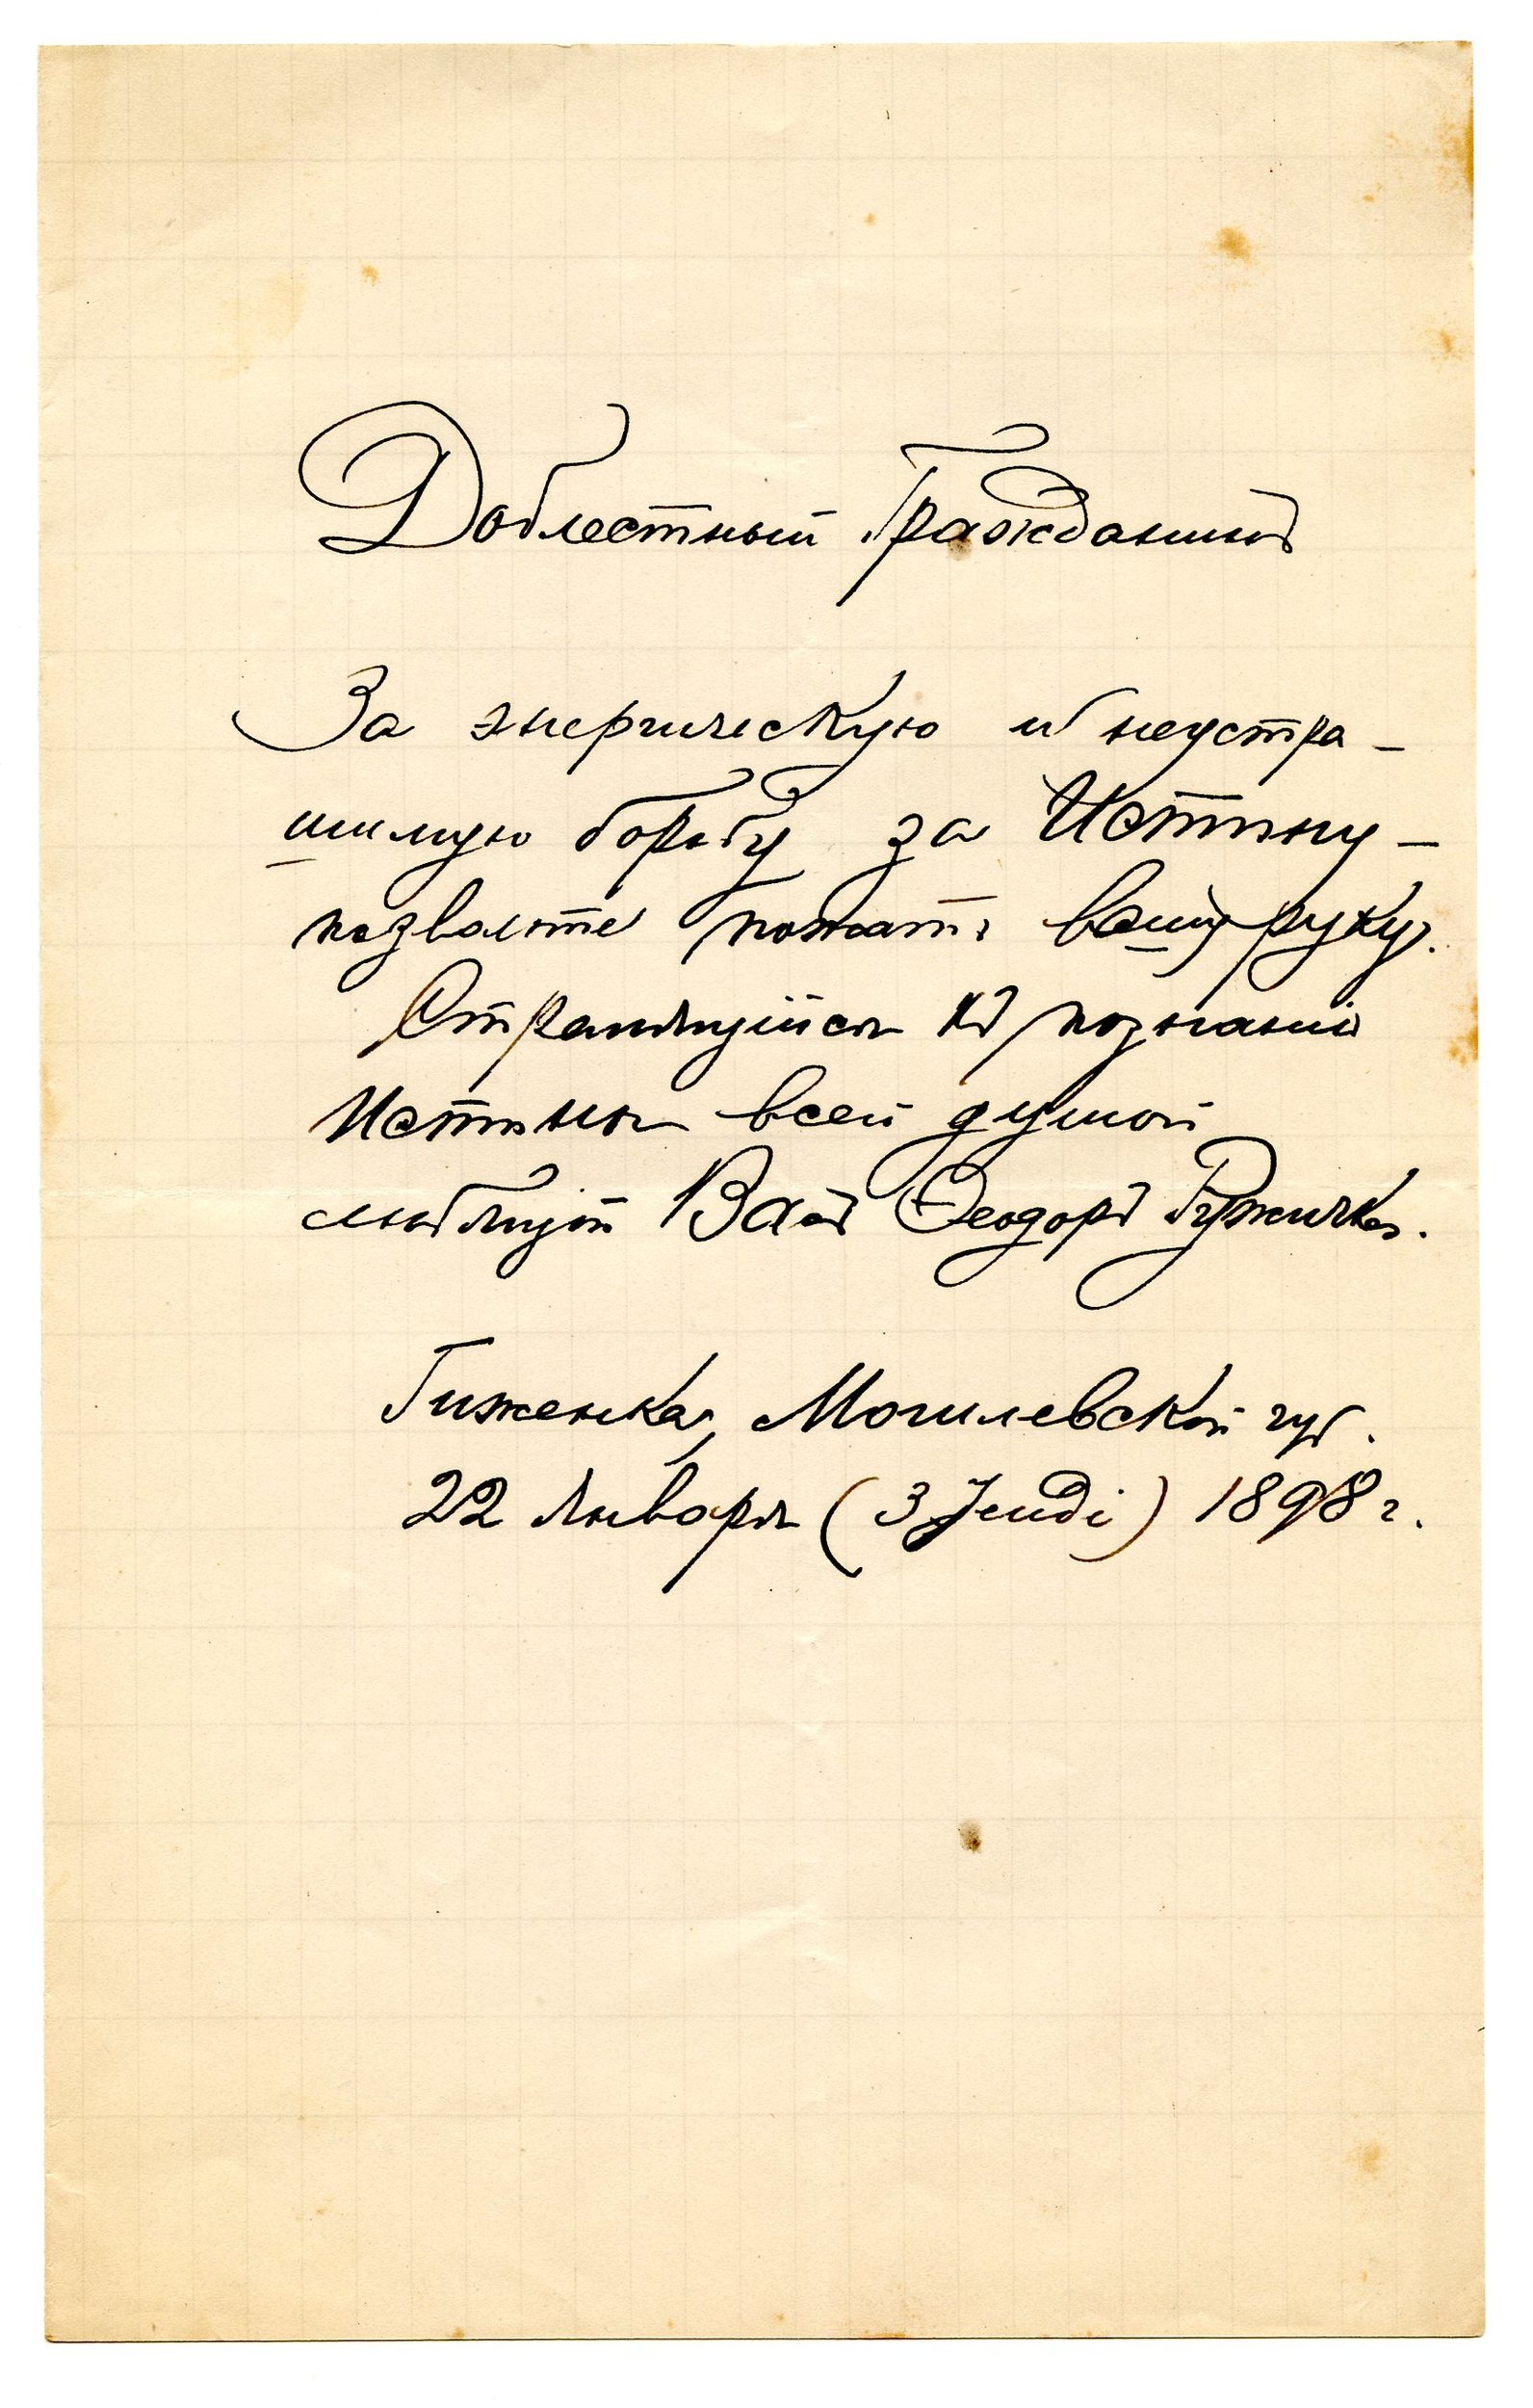 Доблестный Гражданинъ
За энергическую и неустра-
шимую борьбу за Истину -
позвольте пожать вашу руку.
Стремящійся къ познанію
Истины всей душой
любящій Васъ Ѳеодоръ Ружичка.
Гиженка, Могилевской губ.
22 Января (3 Jeudi) 1898 г.